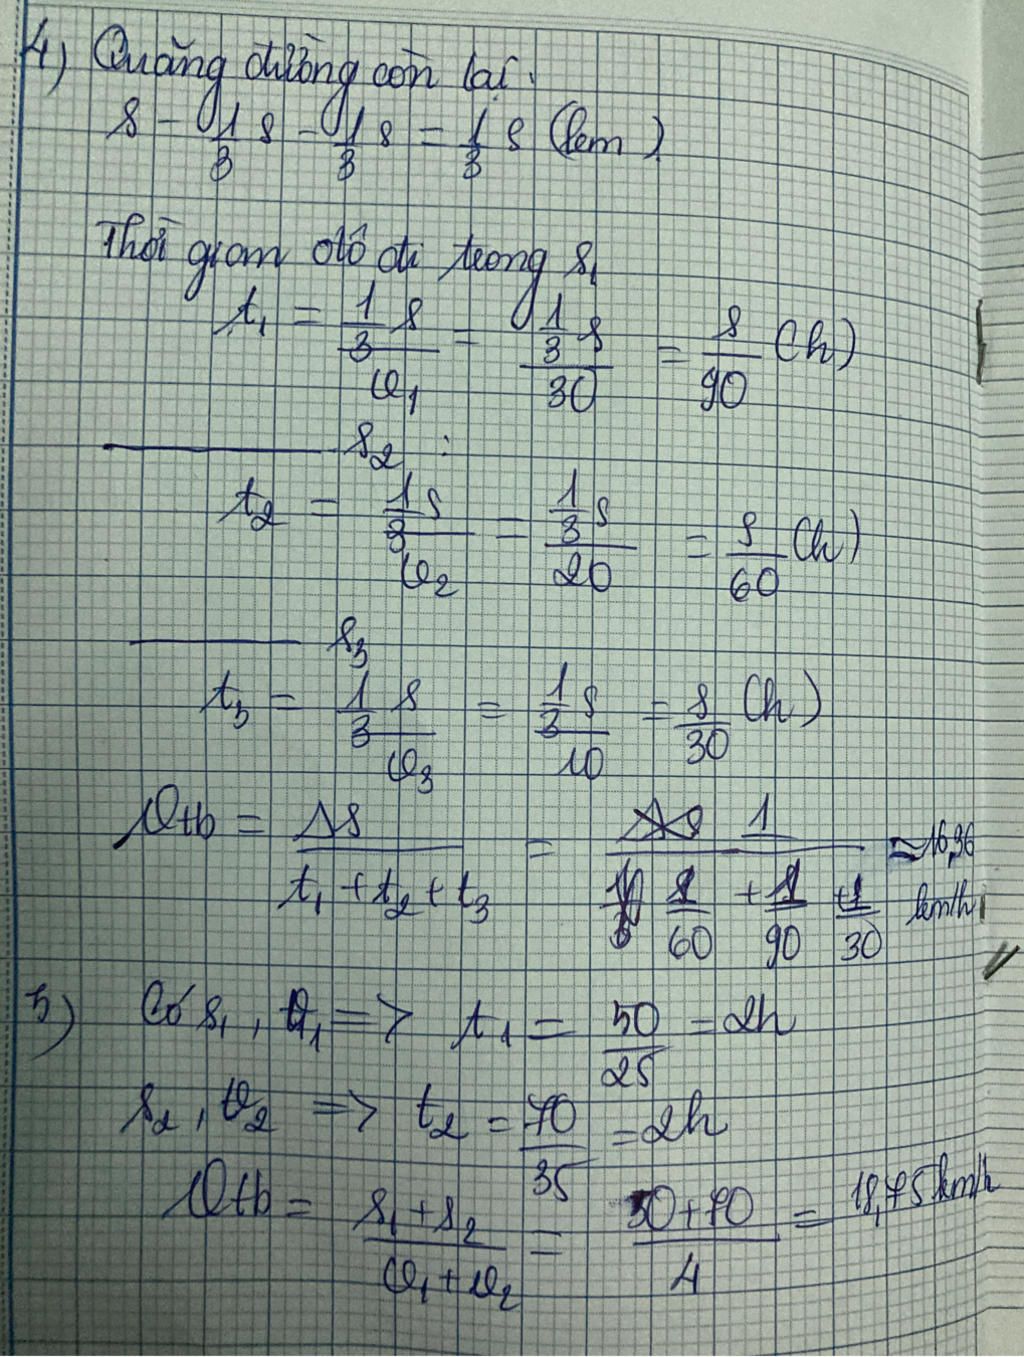 4) Quãng đường còn lại:
s - 1/3 s - 1/3 s = 1/3 s (km)
Thời gian ôtô đi trong s₁
t₁ = 1/3 s / v₁ = 1/3 s / 30 = s/90 (h)
——— s₂ :
t₂ = 1/3 s / v₂ = 1/3 s / 20 = s/60 (h)
——— s₃
t₃ = 1/3 s / v₃ = 1/3 s / 10 = s/30 (h)
vtb = Δs / (t₁ + t₂ + t₃) = 1 / (1/60 + 1/90 + 1/30) ≈ 16,36 km/h
5) Có s₁, v₁ => t₁ = 50/25 = 2h
s₂, v₂ => t₂ = 70/35 = 2h
vtb = (s₁ + s₂) / (v₁ + v₂) = (50+70) / 4 = 18,75 km/h